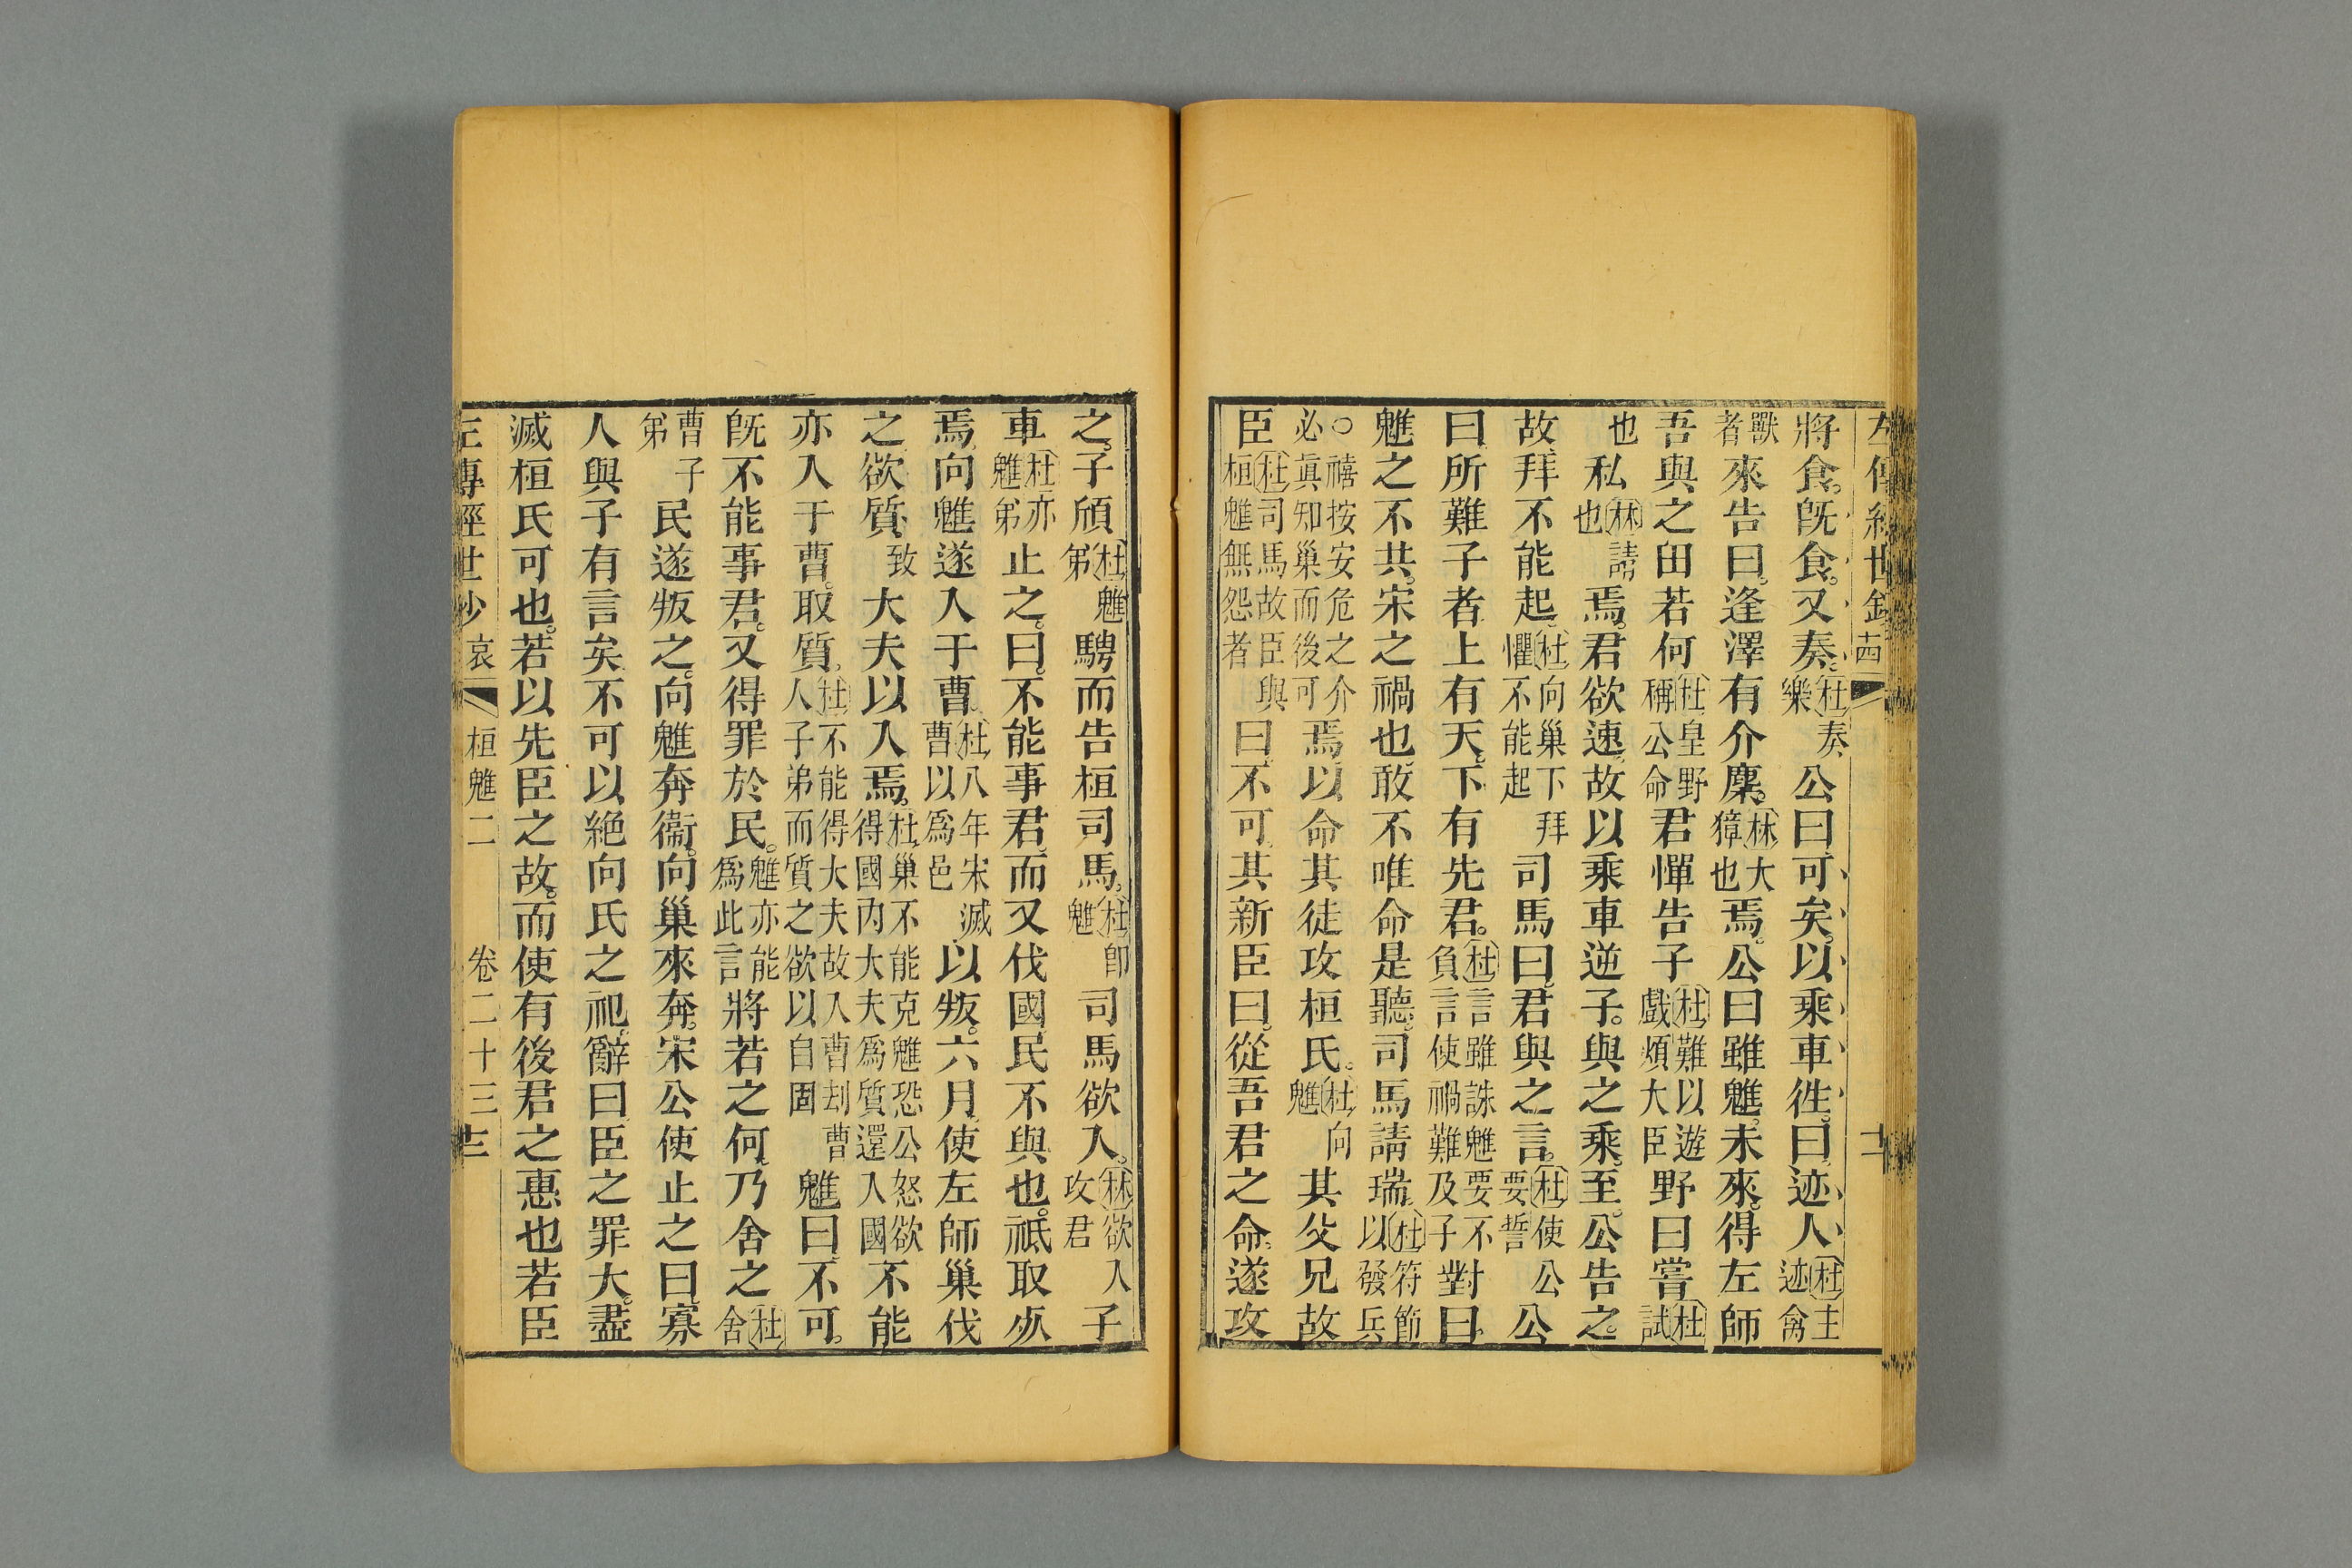 左傳經世鈔
將食旣食又奏杜奏樂公曰可矣以乘車往曰迹人杜主迹禽
獸者來告曰逢澤有介麇林大獐也焉公曰雖魋未來得左師
吾與之田若何杜皇野稱公命君憚告子杜難以遊戲煩大臣野曰嘗杜試
也私林請也焉君欲速故以乘車逆子與之乘至公告之
故拜不能起杜向巢下拜懼不能起司馬曰君與之言杜使公要誓公
曰所難子者上有天下有先君杜言雖誅魋要不負言使禍難及子對曰
魋之不共宋之禍也敢不唯命是聽司馬請瑞杜符節以發兵
○禧按安危之介必眞知巢而後可焉以命其徒攻桓氏杜向魋其父兄故
臣杜司馬故臣與桓魋無怨者曰不可其新臣曰從吾君之命遂攻
之子頎杜魋弟騁而告桓司馬杜卽魋司馬欲入林欲入攻君子
車杜亦魋弟止之曰不能事君而又伐國民不與也祗取死
焉向魋遂入于曹杜八年宋滅曹以爲邑以叛六月使左師巢伐
之欲質致大夫以入焉杜巢不能克魋恐公怒欲得國內大夫爲質還入國不能
亦入于曹取質杜不能得大夫故入曹刦曹人子弟而質之欲以自固魋曰不可
旣不能事君又得罪於民魋亦能爲此言將若之何乃舍之杜舍
曹子弟民遂叛之向魋奔衞向巢來奔宋公使止之曰寡
人與子有言矣不可以絶向氏之祀辭曰臣之罪大盡
滅桓氏可也若以先臣之故而使有後君之惠也若臣
左傳經世鈔 哀 桓魋二 卷二十三